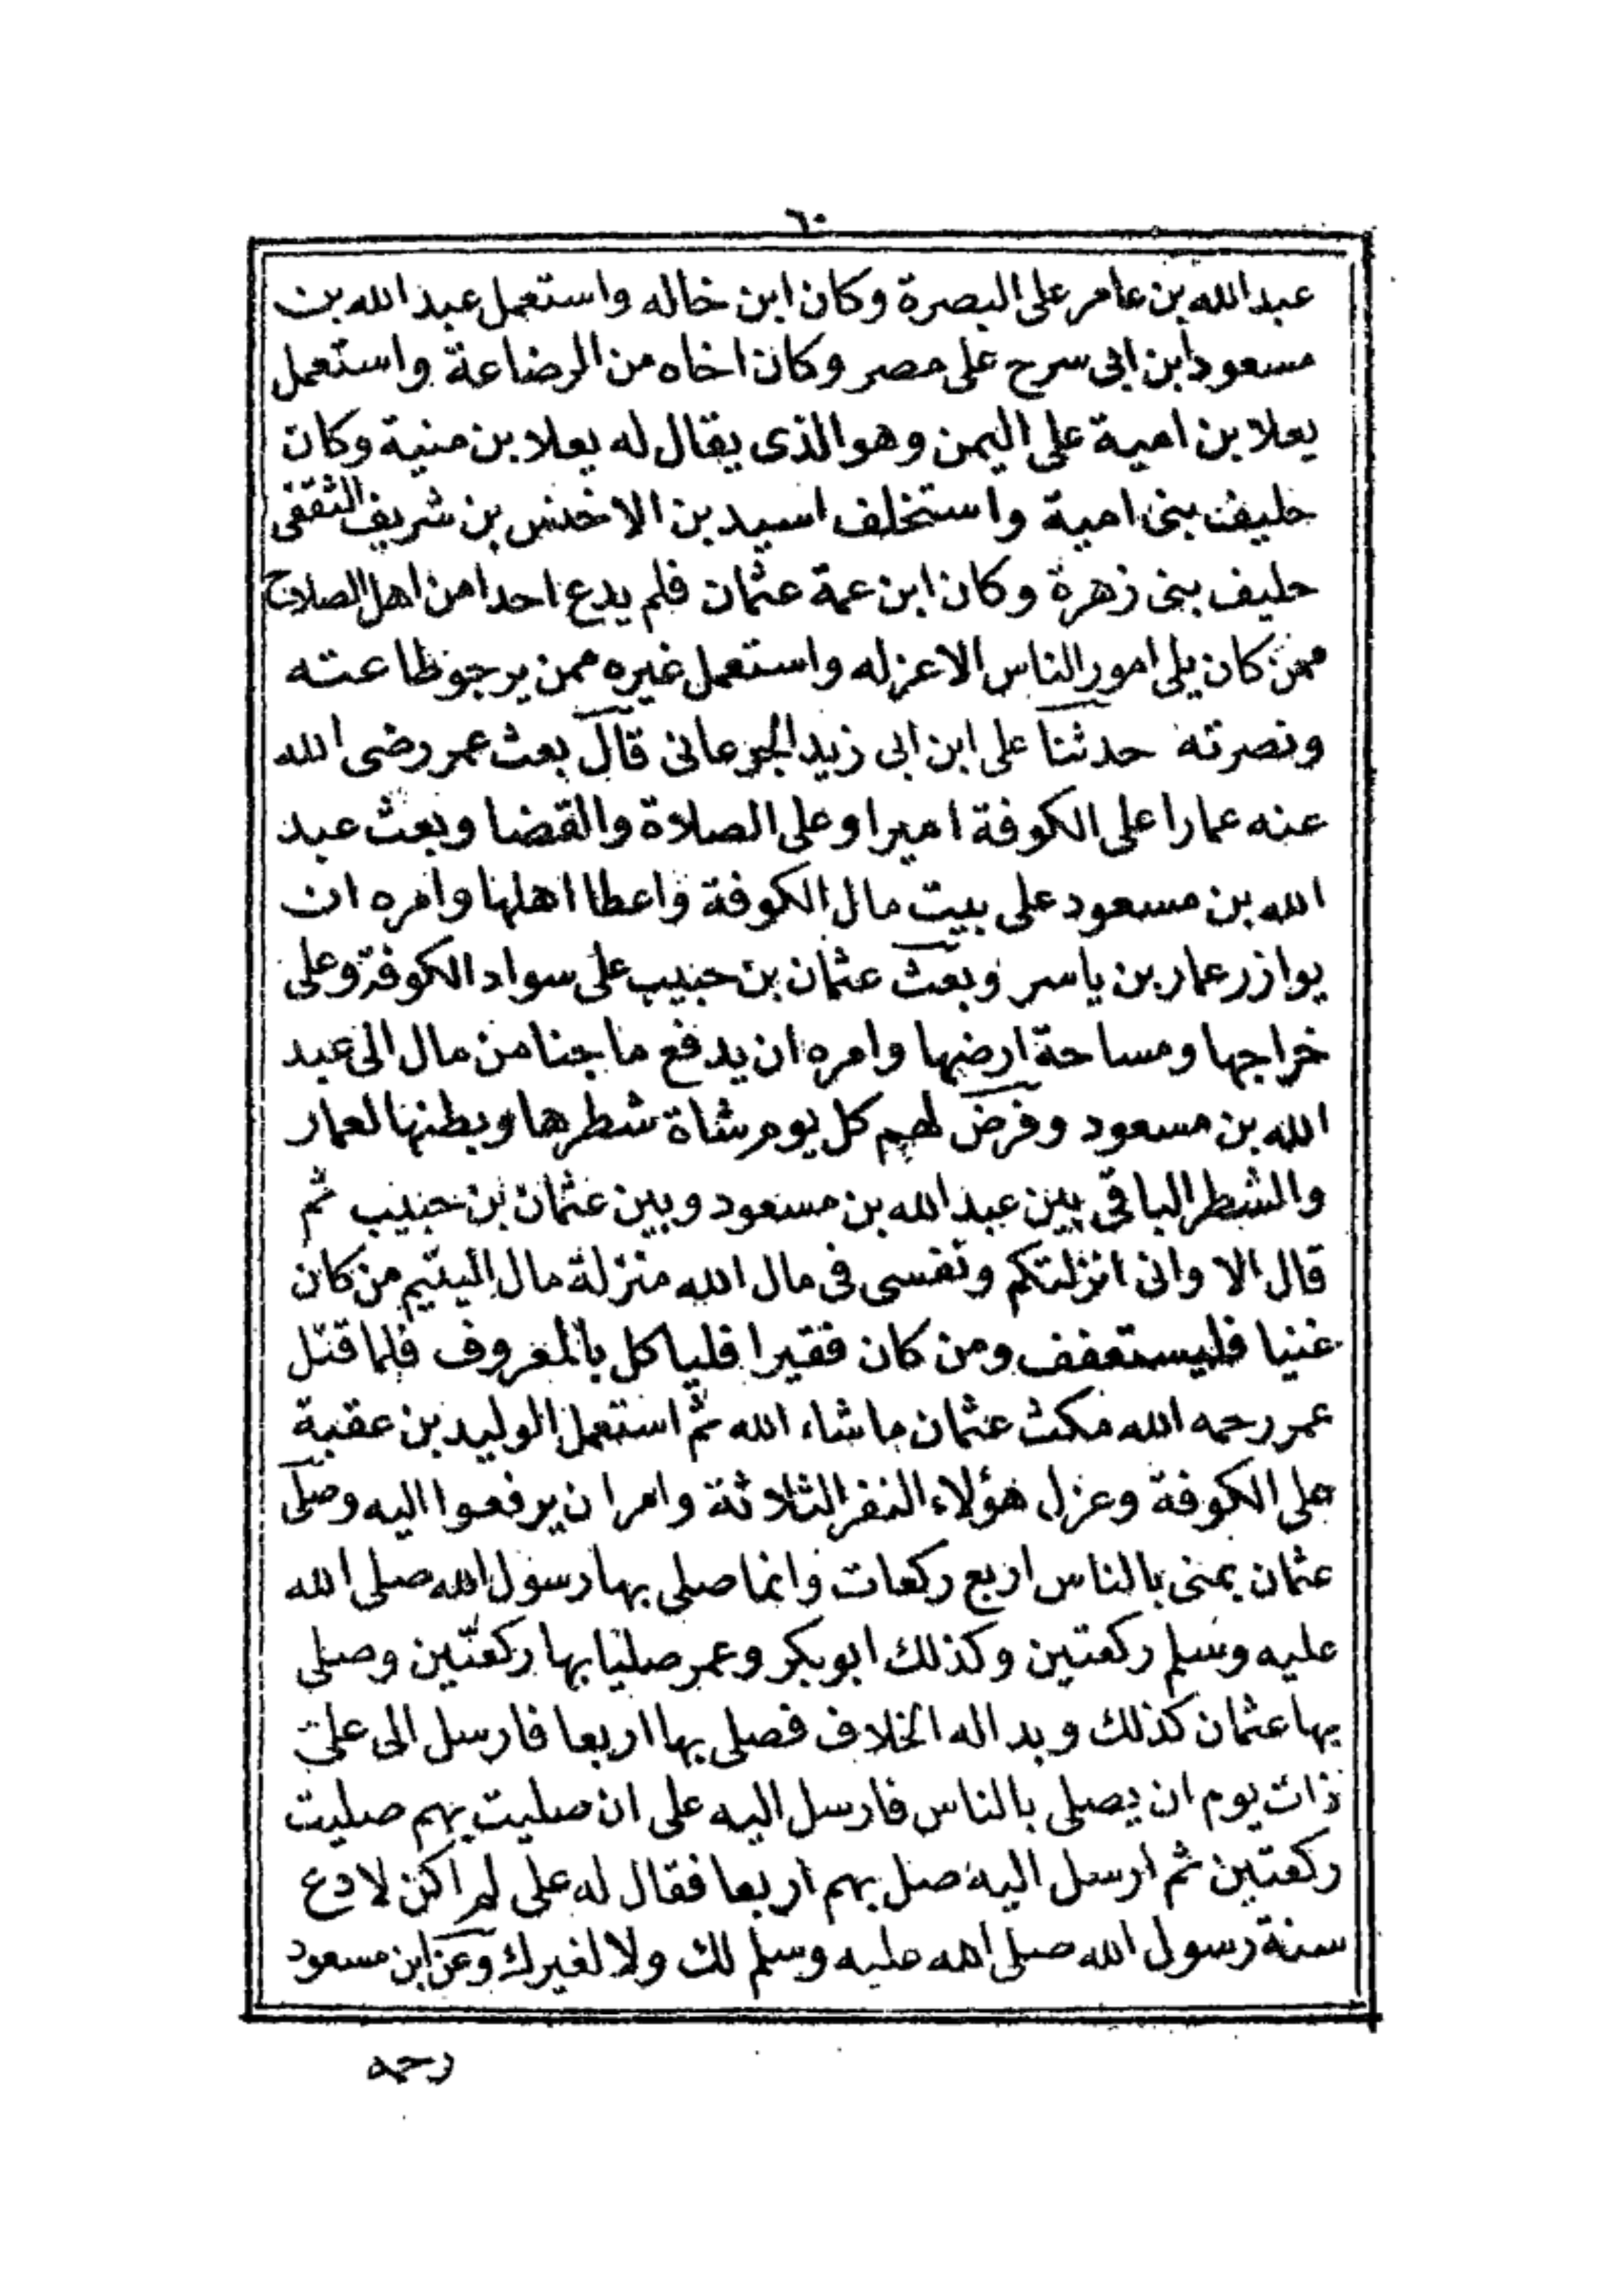 ٦٠
عبد الله بن عامر على البصرة وكان ابن خاله واستعمل عبد الله بن
مسعود ابن ابى سرح على مصر وكان اخاه من الرضاعة واستعمل
يعلا بن امية على اليمن وهو الذى يقال له يعلا بن منية وكان
حليف بنى امية واستخلف اسيد بن الاخنس بن شريف الثقفى
حليف بنى زهرة وكان ابن عمة عثمان فلم يدع احدا من اهل الصلاح
ممن كان يلى امور الناس الا عزله واستعمل غيره ممن يرجو طاعته
ونصرته حدثنا على ابن ابى زيد الجرعانى قال بعث عمر رضى الله
عنه عمارا على الكوفة اميرا وعلى الصلاة والقضا وبعث عبد
الله بن مسعود على بيت مال الكوفة واعطا اهلها وامره ان
يوازر عمار بن ياسر وبعث عثمان بن حبيب على سواد الكوفة وعلى
خراجها ومساحة ارضها وامره ان يدفع ما جنا من مال الى عبد
الله بن مسعود وفرض لهم كل يوم شاة شطرها وبطنها لعمار
والشطر الباقى بين عبد الله بن مسعود وبين عثمان بن حبيب ثم
قال الا وانى انزلتكم ونفسى فى مال الله منزلة مال اليتيم من كان
غنيا فليستعفف ومن كان فقيرا فلياكل بالمعروف فلما قتل
عمر رحمه الله مكث عثمان ما شاء الله ثم استعمل الوليد بن عقبة
على الكوفة وعزل هؤلاء النفر الثلاثة وامر ان يرفعوا اليه وصلى
عثمان بمنى بالناس اربع ركعات وانما صلى بها رسول الله صلى الله
عليه وسلم ركعتين وكذلك ابو بكر وعمر صليا بها ركعتين وصلى
بها عثمان كذلك وبدا له الخلاف فصلى بها اربعا فارسل الى على
ذات يوم ان يصلى بالناس فارسل اليه على ان صليت بهم صليت
ركعتين ثم ارسل اليه صل بهم اربعا فقال له على لم اكن لادع
سنة رسول الله صلى الله عليه وسلم لك ولا لغيرك وعن ابن مسعود
رحمه